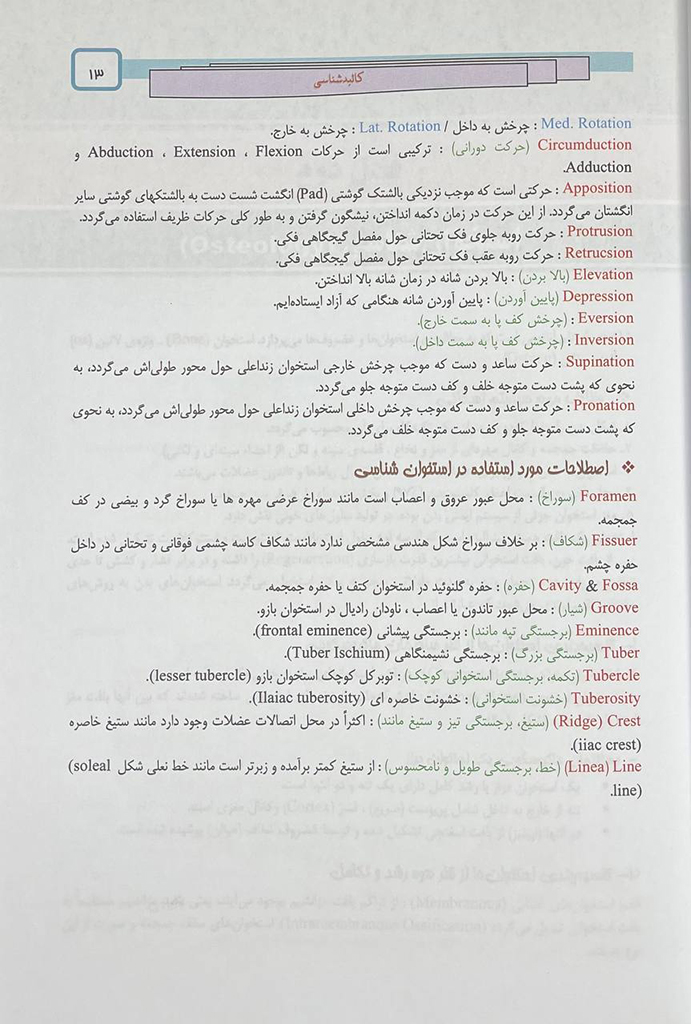 ۱۳
کالبدشناسی
Med. Rotation : چرخش به داخل / Lat. Rotation : چرخش به خارج.
Circumduction (حرکت دورانی) : ترکیبی است از حرکات Abduction ، Extension ، Flexion و
Adduction.
Apposition : حرکتی است که موجب نزدیکی بالشتک گوشتی (Pad) انگشت شست دست به بالشتکهای گوشتی سایر
انگشتان می‌گردد. از این حرکت در زمان دکمه انداختن، نیشگون گرفتن و به طور کلی حرکات ظریف استفاده می‌گردد.
Protrusion : حرکت روبه جلوی فک تحتانی حول مفصل گیجگاهی فکی.
Retrucsion : حرکت روبه عقب فک تحتانی حول مفصل گیجگاهی فکی.
Elevation (بالا بردن) : بالا بردن شانه در زمان شانه بالا انداختن.
Depression (پایین آوردن) : پایین آوردن شانه هنگامی که آزاد ایستاده‌ایم.
Eversion : (چرخش کف پا به سمت خارج).
Inversion : (چرخش کف پا به سمت داخل).
Supination : حرکت ساعد و دست که موجب چرخش خارجی استخوان زنداعلی حول محور طولی‌اش می‌گردد، به
نحوی که پشت دست متوجه خلف و کف دست متوجه جلو می‌گردد.
Pronation : حرکت ساعد و دست که موجب چرخش داخلی استخوان زنداعلی حول محور طولی‌اش می‌گردد، به نحوی
که پشت دست متوجه جلو و کف دست متوجه خلف می‌گردد.
❖ اصطلاحات مورد استفاده در استخوان شناسی
Foramen (سوراخ) : محل عبور عروق و اعصاب است مانند سوراخ عرضی مهره ها یا سوراخ گرد و بیضی در کف
جمجمه.
Fissuer (شکاف) : بر خلاف سوراخ شکل هندسی مشخصی ندارد مانند شکاف کاسه چشمی فوقانی و تحتانی در داخل
حفره چشم.
Cavity & Fossa (حفره) : حفره گلنوئید در استخوان کتف یا حفره جمجمه.
Groove (شیار) : محل عبور تاندون یا اعصاب ، ناودان رادیال در استخوان بازو.
Eminence (برجستگی تپه مانند) : برجستگی پیشانی (frontal eminence).
Tuber (برجستگی بزرگ) : برجستگی نشیمنگاهی (Tuber Ischium).
Tubercle (تکمه، برجستگی استخوانی کوچک) : توبرکل کوچک استخوان بازو (lesser tubercle).
Tuberosity (خشونت استخوانی) : خشونت خاصره ای (Ilaiac tuberosity).
(Ridge) Crest (ستیغ، برجستگی تیز و ستیغ مانند) : اکثراً در محل اتصالات عضلات وجود دارد مانند ستیغ خاصره
(iiac crest).
(Linea) Line (خط، برجستگی طویل و نامحسوس) : از ستیغ کمتر برآمده و زبرتر است مانند خط نعلی شکل (soleal
line).